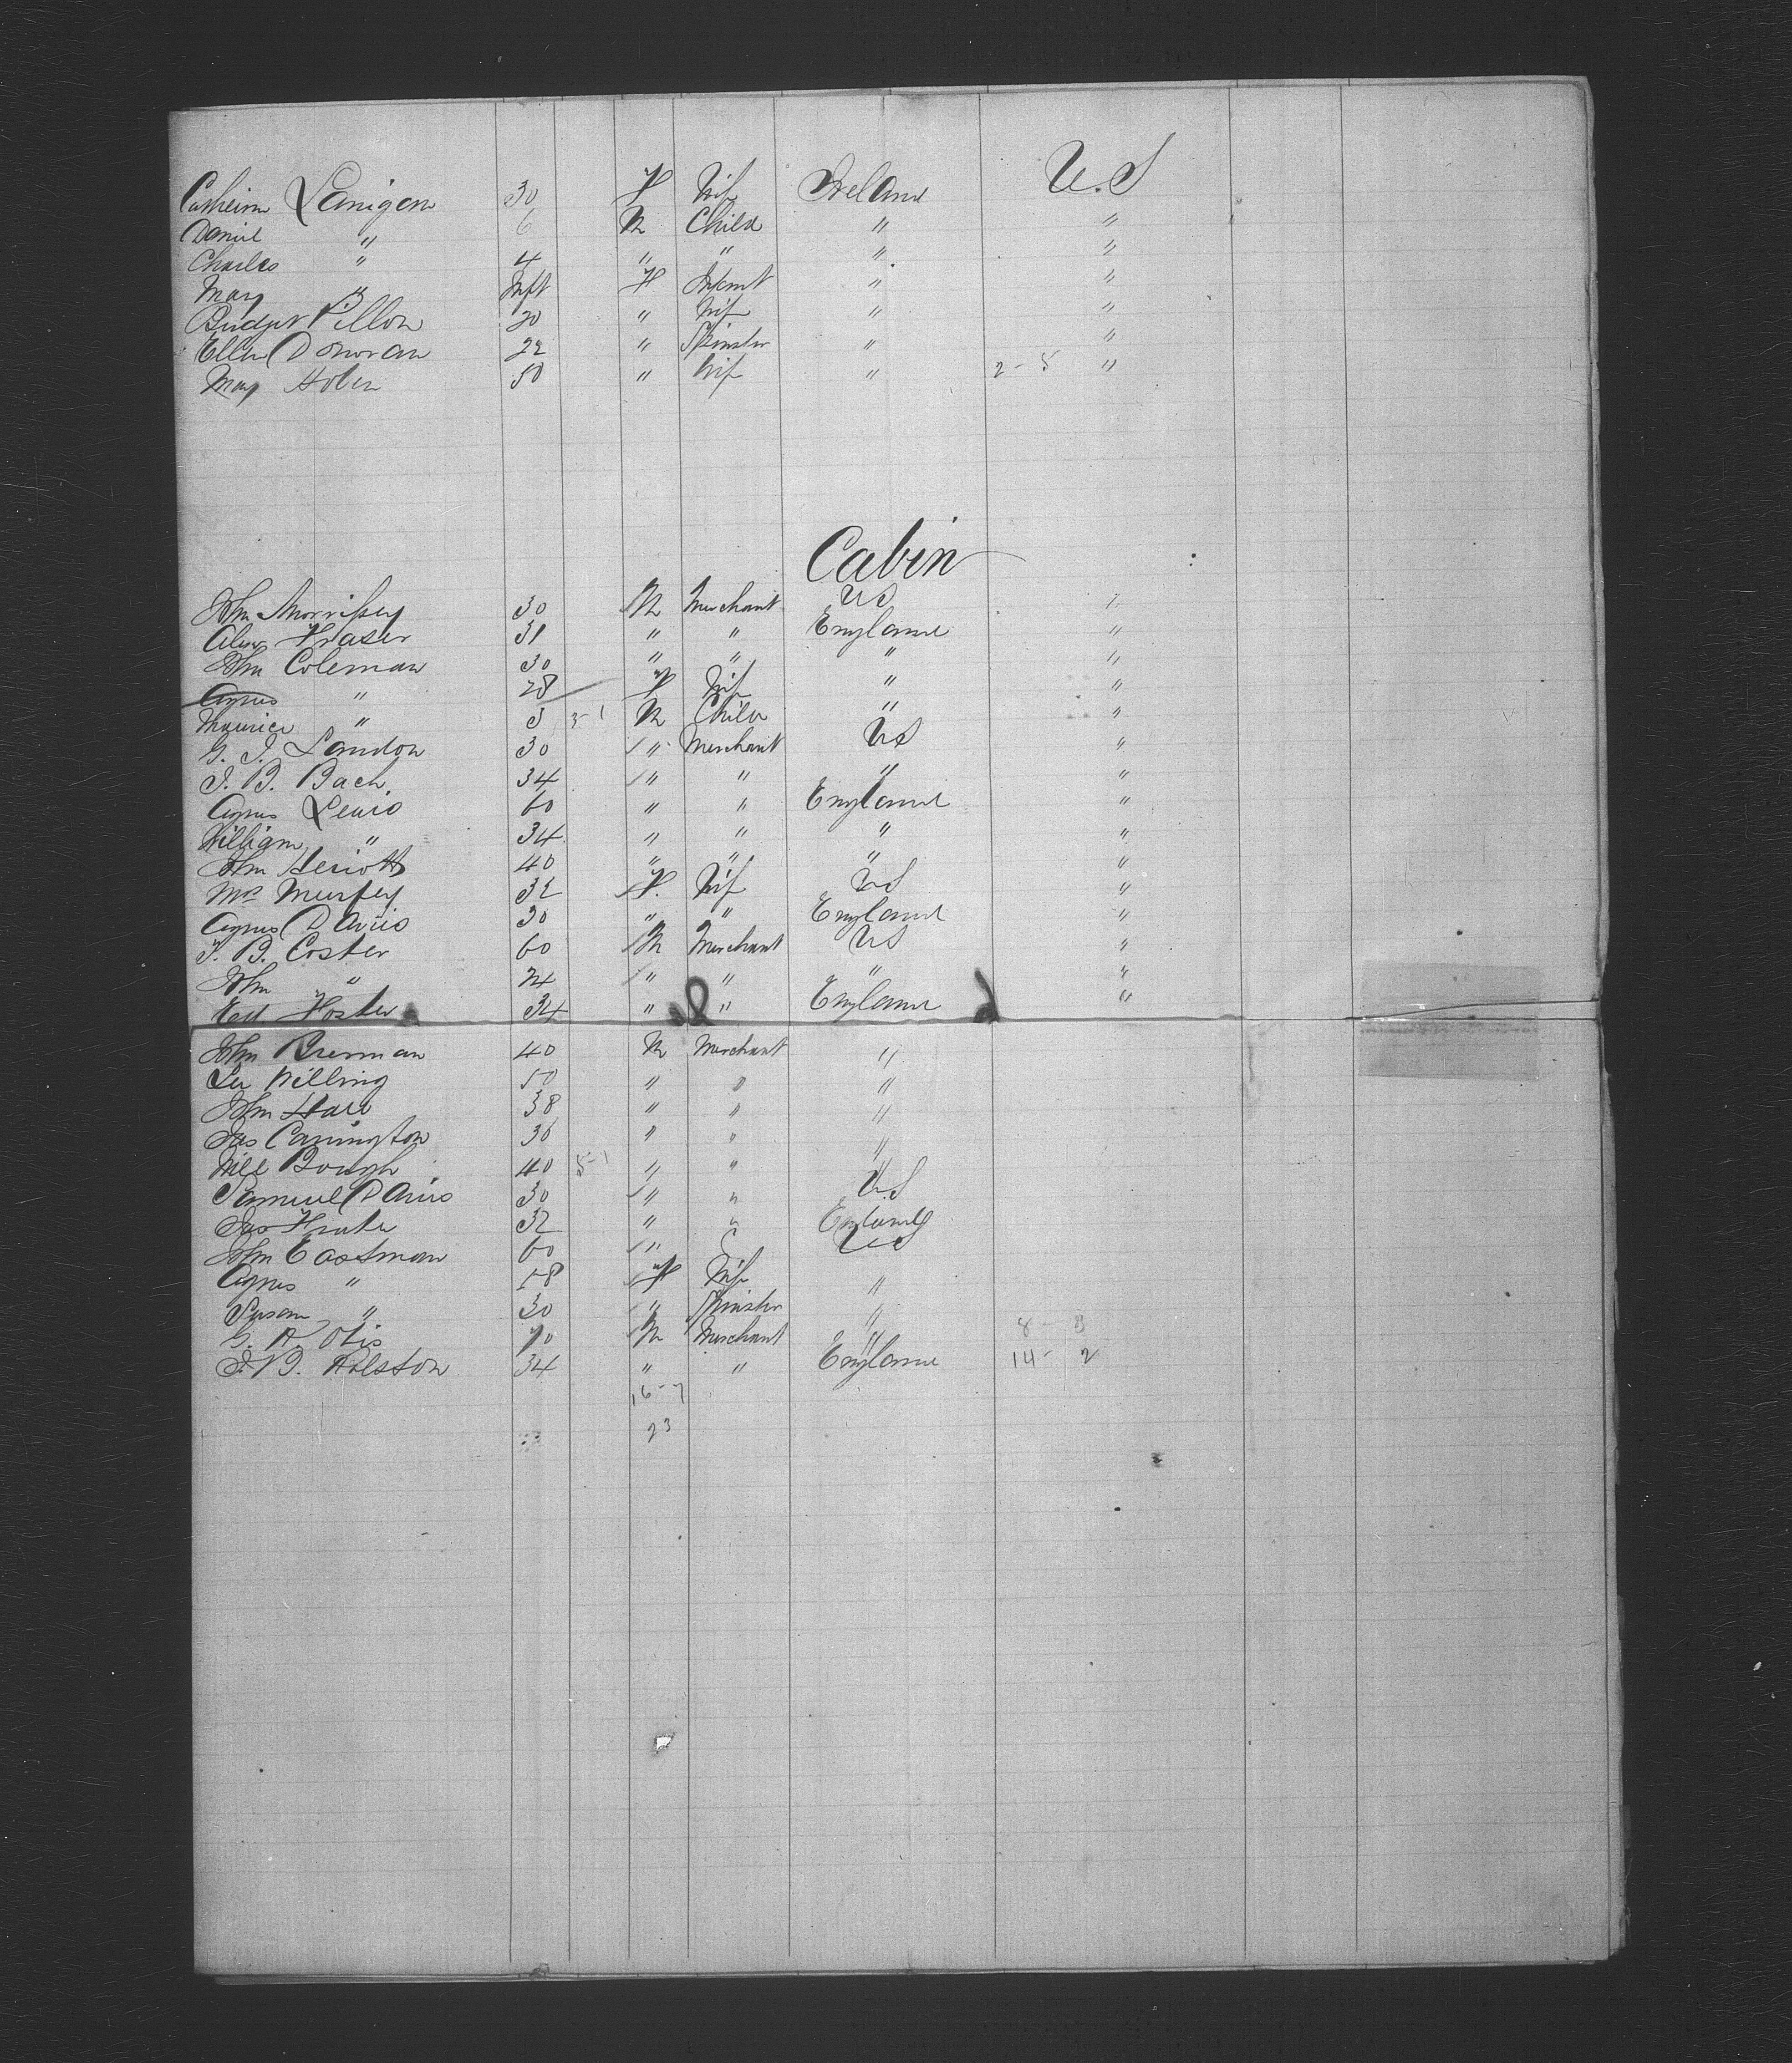 Catherine Lanigan 30 F Wife Ireland U.S
Daniel " 6 M Child " "
Charles " 4 " " " "
Mary " Inft F Infant " "
Bridget Dillon 20 " Wife " "
Ellen Donovan 22 " Spinster " "
Mary Holen 50 " Wife " 2-5 "
Cabin
John Morrissey 30 M Merchant US "
Alex Fraser 31 " " England "
John Coleman 30 " " " "
Agnes " 28 F Wife " "
Maurice " 3 3-1 M Child " "
G. J. Landon 30 " Merchant US "
J. B. Bach 34 " " " "
Agnes Lewis 60 " " England "
William " 34 " " " "
John Heriott 40 " " " "
Mrs Murfey 32 F. Wife US "
Agnes Davis 30 " " England "
J. B. Coster 60 M Merchant US "
John " 24 " " " "
Ed Foster 34 " " England "
John Brennan 40 M Merchant "
Willing 50 " " "
John Hall 38 " " "
Jas Carrington 36 " " "
Will Bough 40 5-1 " " "
Samuel Davis 30 " " U.S
Jas 32 " " England
John Eastman 60 " " US
Agnes " 58 F Wife "
Susan " 30 " Spinster "
G. A. Otis 70 M Merchant " 8-3
J. B. Ralston 34 " " England 14-2
16-7
23